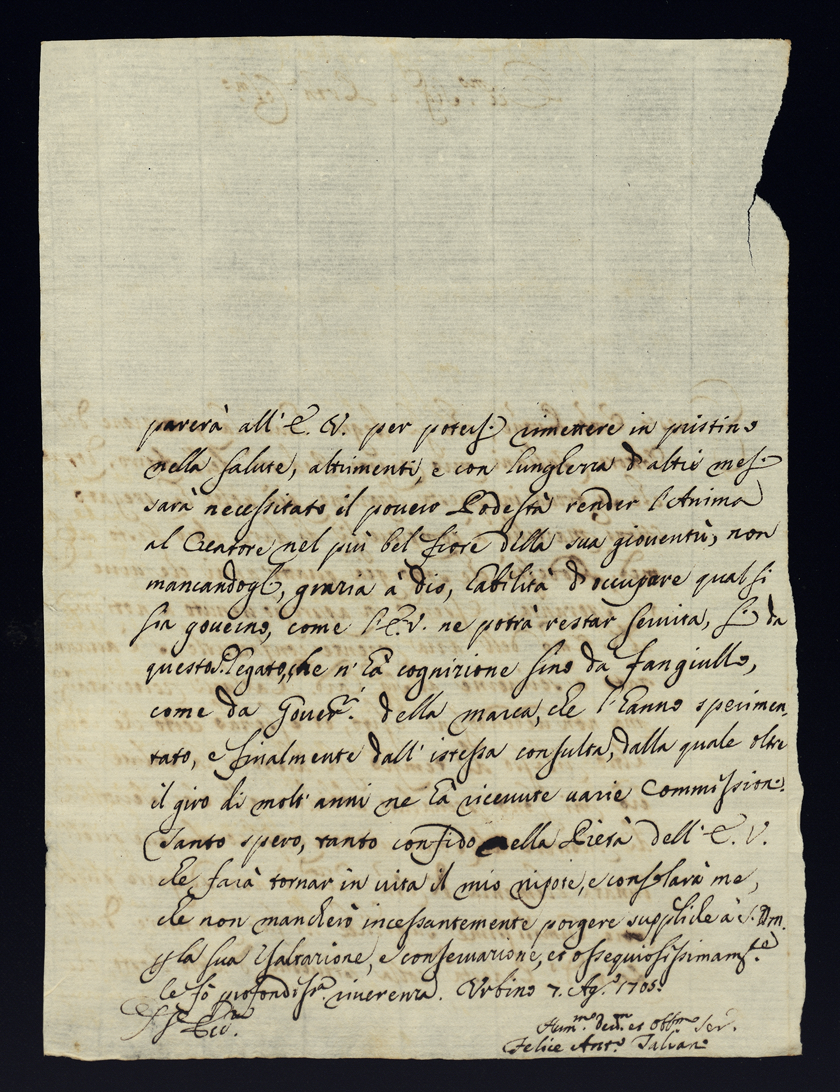 parerà all' E. V. per potersi rimettere in pristino
nella salute, altrimenti, e con lunghezza d'altri mesi
sarà necessitato il povero Podestà render l'Anima
al Creatore nel più bel fiore della sua gioventù, non
mancandogli, grazia à Dio, l'abilità d'occupare qual si
sia governo, come l'E.V. ne potrà restar servita, si da
questo P. Legato, che n' hà cognizione sino da fangiullo,
come da Gover.ri della marca, che l'hanno sperimen
tato, e finalmente dall' istessa consulta, dalla quale oltre
il giro di molt' anni ne hà ricevute varie Commissioni.
Tanto spero, tanto confido nella Pietà dell' E. V.
che farà tornar in vita il mio nipote, e consolarà me,
che non mancherò incessantemente porgere suppliche à S. Dm.
p la sua Esaltazione, e conservazione, et ossequiosissimam.te
le fò profondiss.a riverenza. Urbino 7. Ag.o 1705.
Hum.mo dev.mo et Obb.mo Ser.
Felice Ant.o